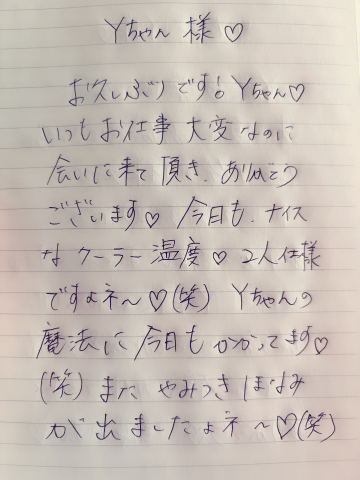 Yちゃん 様♡
お久しぶりです! Yちゃん♡
いつもお仕事 大変なのに
会いに来て頂き、ありがとう
ございます♡ 今日も、ナイス
な クーラー温度♡ 2人仕様
ですよネ〜♡(笑) Yちゃんの
魔法に今日もかかってます♡
(笑) また やみつき
が出ましたよネ〜♡(笑)